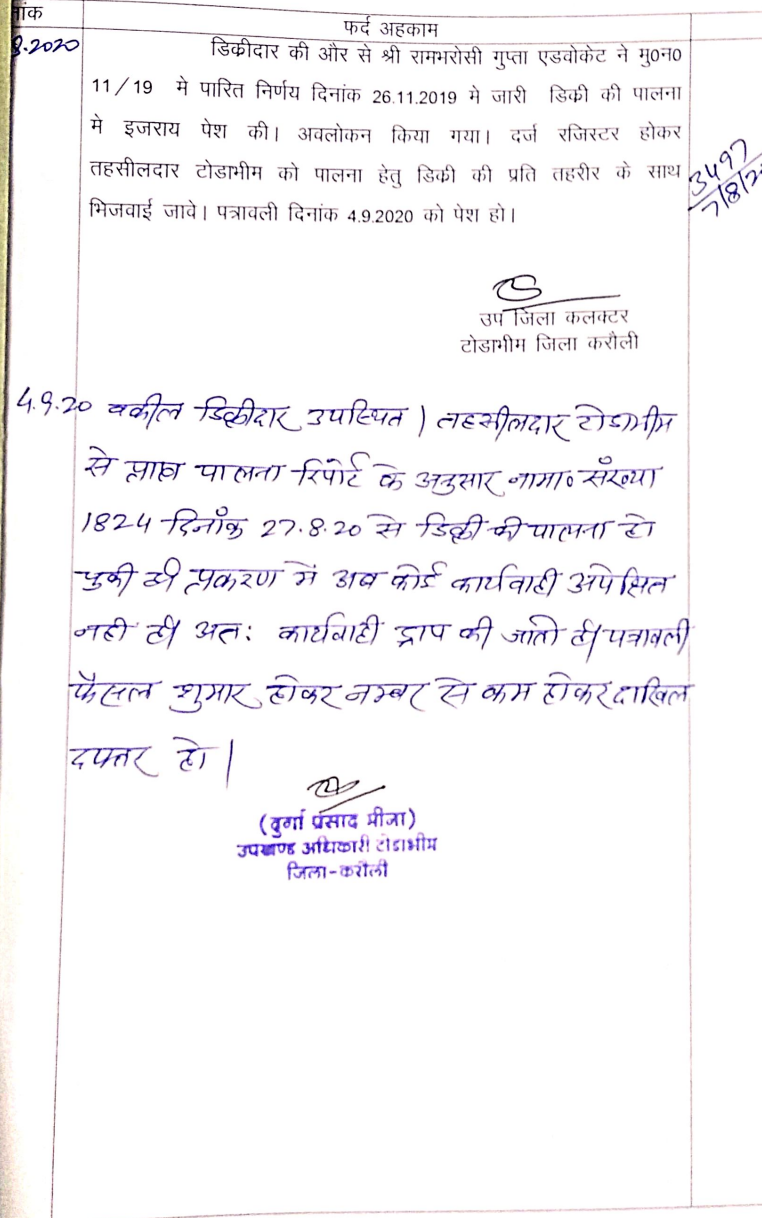 नांक
फर्द अहकाम
8.2020
डिकीदार की और से श्री रामभरोसी गुप्ता एडवोकेट ने मु0न0
11/19 मे पारित निर्णय दिनांक 26.11.2019 मे जारी डिकी की पालना
मे इजराय पेश की। अवलोकन किया गया। दर्ज रजिस्टर होकर
तहसीलदार टोडाभीम को पालना हेतु डिकी की प्रति तहरीर के साथ
भिजवाई जावे। पत्रावली दिनांक 4.9.2020 को पेश हो।
3497
7/8/2
उप जिला कलक्टर
टोडाभीम जिला करौली
4.9.20 वकील डिक्रीदार उपस्थित। तहसीलदार टोडाभीम
से प्राप्त पालना रिपोर्ट के अनुसार नामा० संख्या
1824 दिनाँक 27.8.20 से डिक्री की पालना हो
चुकी है। प्रकरण में अब कोई कार्यवाही अपेक्षित
नही है। अत: कार्यवाही ड्राप की जाती है। पत्रावली
फैसल शुमार होकर नम्बर से कम होकर दाखिल
दफ्तर हो।
(दुर्गा प्रसाद मीना)
उपखण्ड अधिकारी टोडाभीम
जिला-करौली